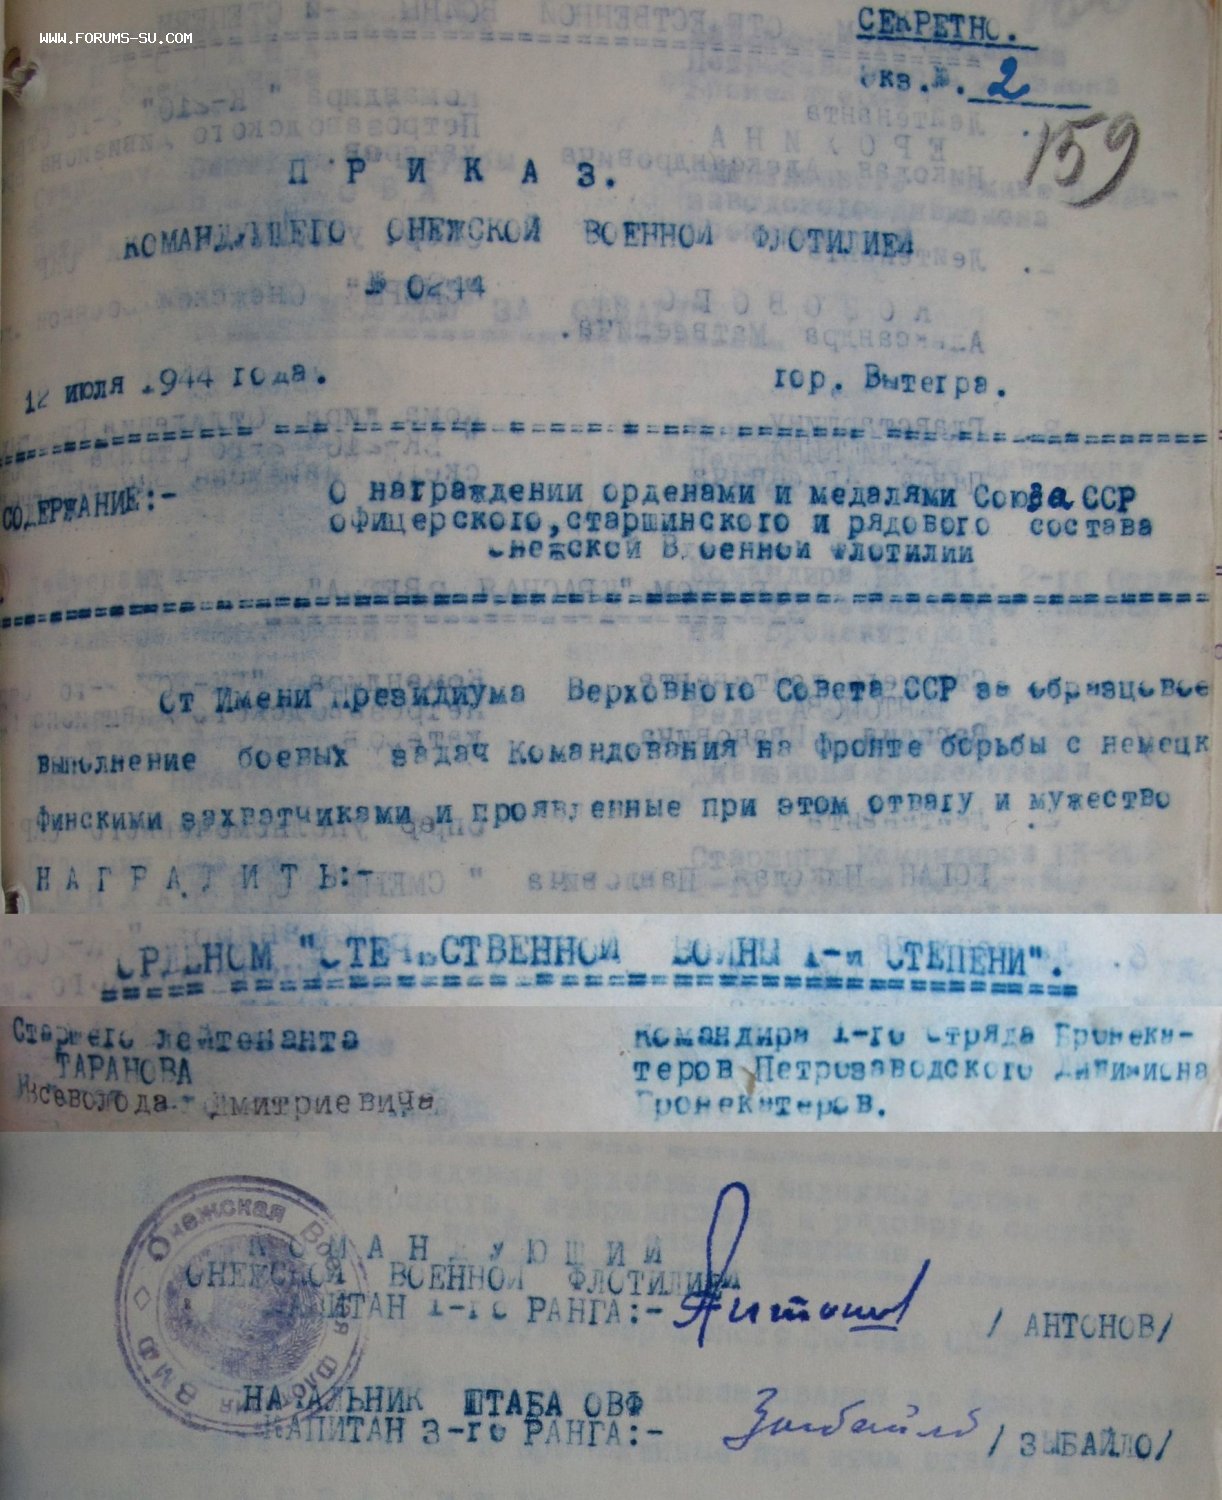 WWW.FORUMS-SU.COM
СЕКРЕТНО.
Экз.№. 2
159
П Р И К А З.
КОМАНДУЮЩЕГО ОНЕЖСКОЙ ВОЕННОЙ ФЛОТИЛИЕЙ
№ 0244
12 июля 1944 года.
гор. Вытегра.
СОДЕРЖАНИЕ:- О награждении орденами и медалями Союза ССР
офицерского, старшинского и рядового состава
Онежской Военной Флотилии
От Имени Президиума Верховного Совета ССР за образцовое
выполнение боевых задач Командования на фронте борьбы с немецк
финскими захватчиками и проявленные при этом отвагу и мужество
Н А Г Р А Д И Т Ь:-
ОРДЕНОМ "ОТЕЧЕСТВЕННОЙ ВОЙНЫ 1-й СТЕПЕНИ".
Старшего лейтенанта
ТАРАНОВА
Всеволода Дмитриевича
Командира 1-го Отряда Бронека-
теров Петрозаводского Дивизиона
Бронекатеров.
Онежская Военная Флотилия ВМФ
К О М А Н Д У Ю Щ И Й
ОНЕЖСКОЙ ВОЕННОЙ ФЛОТИЛИЕЙ
КАПИТАН 1-го РАНГА:- Антонов / АНТОНОВ/
НАЧАЛЬНИК ШТАБА ОВФ
КАПИТАН 3-го РАНГА:- Зыбайло / ЗЫБАЙЛО/